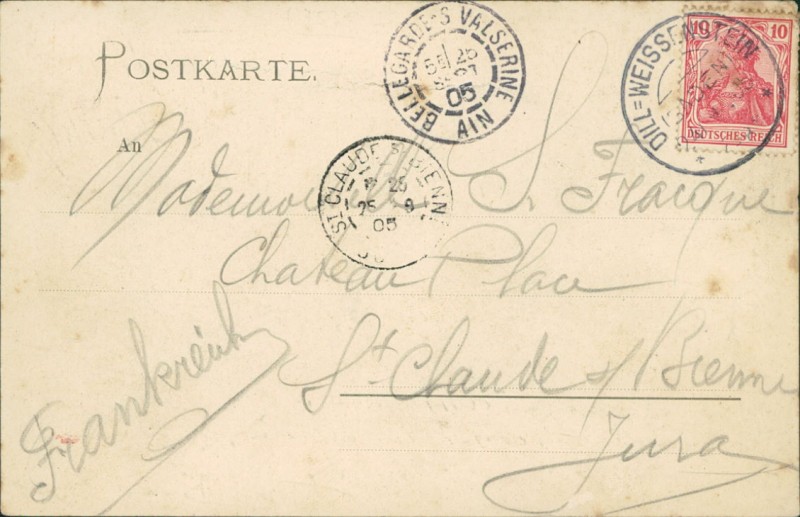 POSTKARTE.
BELLEGARDE-S VALSERINE
25
05
AIN
DILL=WEISSENSTEIN
10 10
DEUTSCHES REICH
An
ST CLAUDE S BIENNE
25
25 9
05
Mademoiselle S. Fracque
Chateau Place
St Claude s/ Bienne
Jura
Frankreich